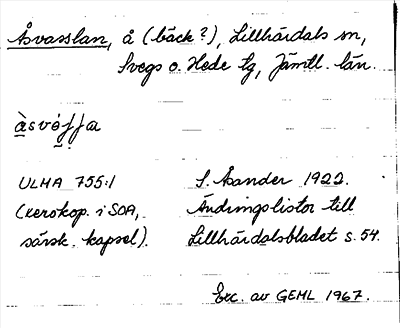 Åsvasslan, å (bäck?), Lillhärdals sn,
Svegs o. Hede tg, Jämtl. län.
àsvóʃʃa
ULMA 755:1 S. Åsander 1922.
(xerokop. i SOA, Ändringslistor till
särsk. kapsel). Lillhärdalsbladet s. 54.
Exc. av GEML 1967.